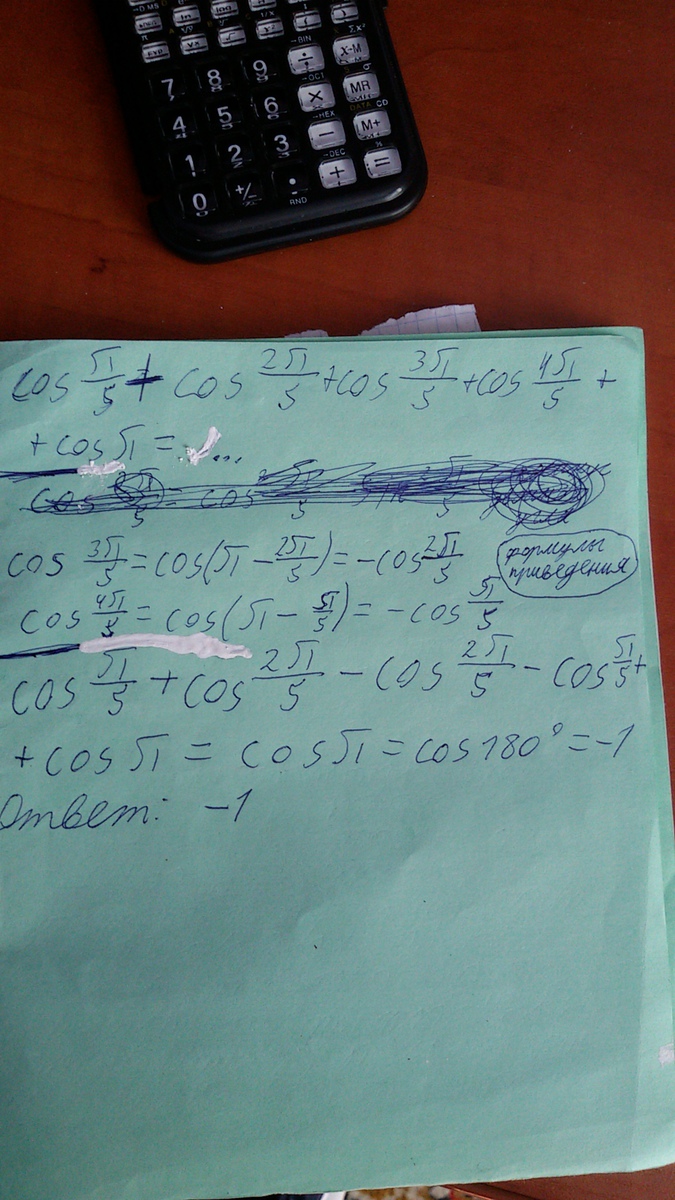 7 8 9 ÷ X-M
4 5 6 × MR
1 2 3 − M+
0 +/− • + =
RND
cos π/5 + cos 2π/5 + cos 3π/5 + cos 4π/5 +
+ cos π = ...
cos 3π/5 = cos(π − 2π/5) = −cos 2π/5
формулы
приведения
cos 4π/5 = cos(π − π/5) = −cos π/5
cos π/5 + cos 2π/5 − cos 2π/5 − cos π/5 +
+ cos π = cos π = cos 180° = −1
Ответ: −1